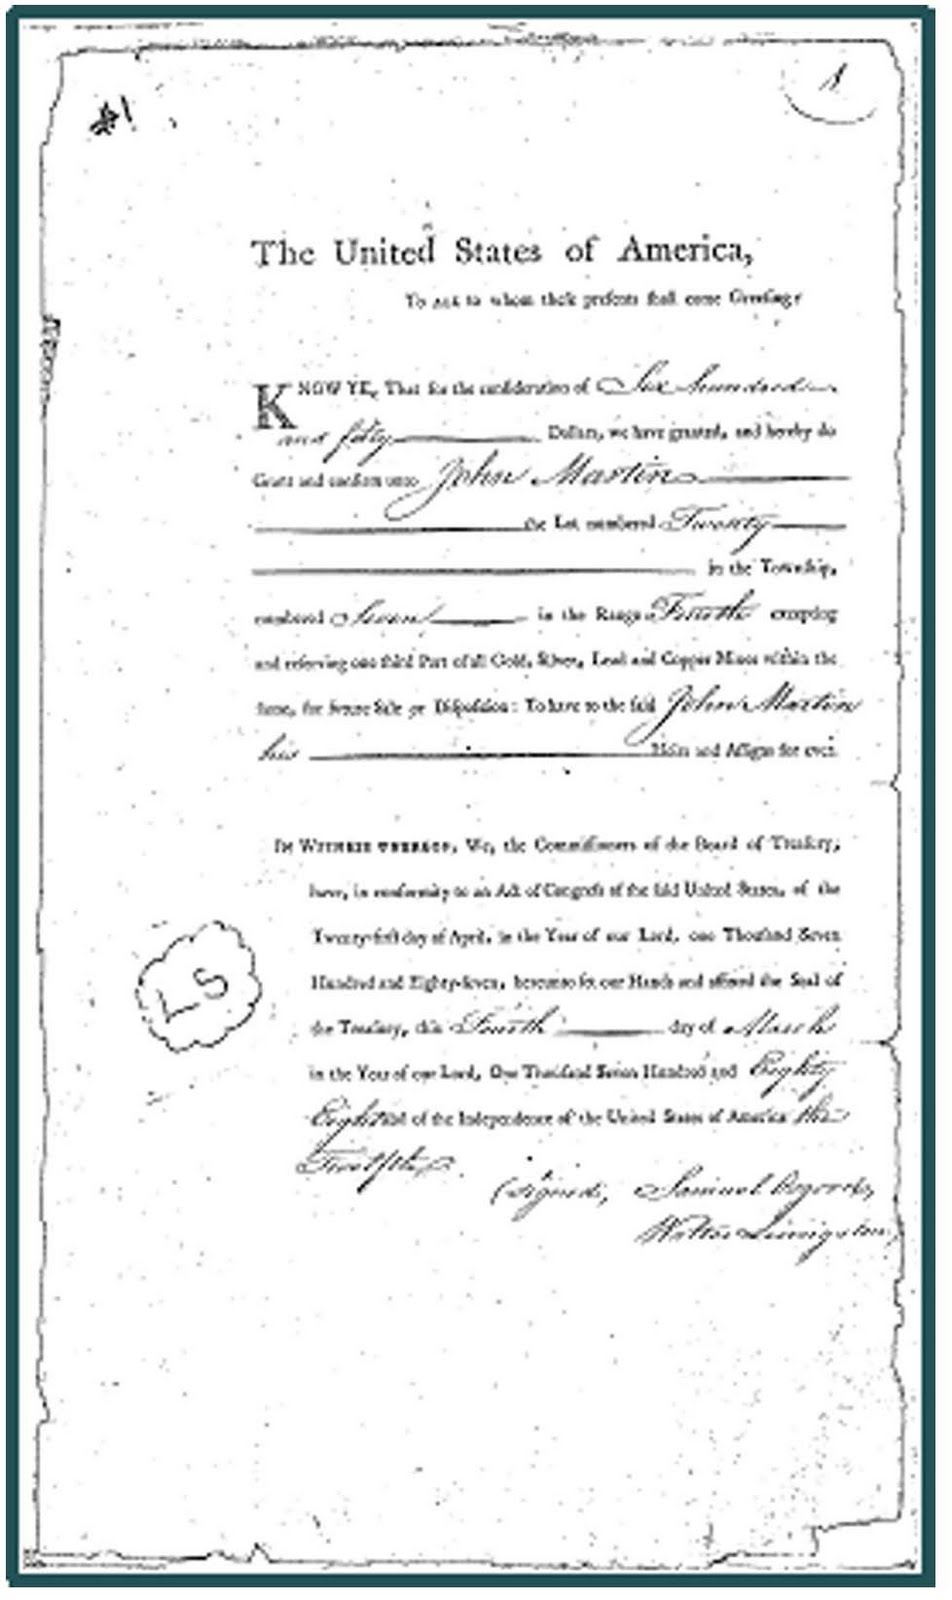 #1
1
The United States of America,
To ALL to whom these presents shall come Greeting:
KNOW YE, That for the consideration of Six hundred
and fifty Dollars, we have granted, and hereby do
Grant and confirm unto John Martin
the Lot numbered Twenty
in the Township,
numbered Seven in the Range Fourth excepting
and reserving one third Part of all Gold, Silver, Lead and Copper Mines within the
same, for future Sale or Disposition: To have to the said John Martin
his Heirs and Assigns for ever.
IN WITNESS WHEREOF, We, the Commissioners of the Board of Treasury,
have, in conformity to an Act of Congress of the said United States, of the
Twenty-first day of April, in the Year of our Lord, one Thousand Seven
Hundred and Eighty-seven, hereunto set our Hands and affixed the Seal of
the Treasury, this Fourth day of March
L S
in the Year of our Lord, One Thousand Seven Hundred and Eighty
Eight and of the Independence of the United States of America the
Twelfth.
(signed, Samuel Osgood,
Walter Livingston,